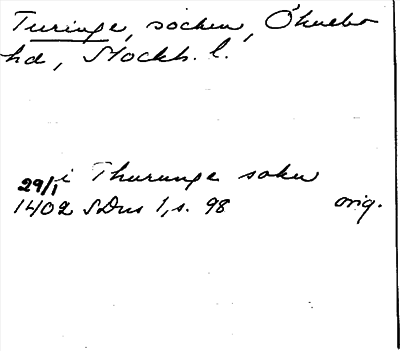 Turinge, socken, Öknebo
hd, Stockh. l.
i Thurunge sokn
29/1
1402 SDns 1, s. 98 orig.